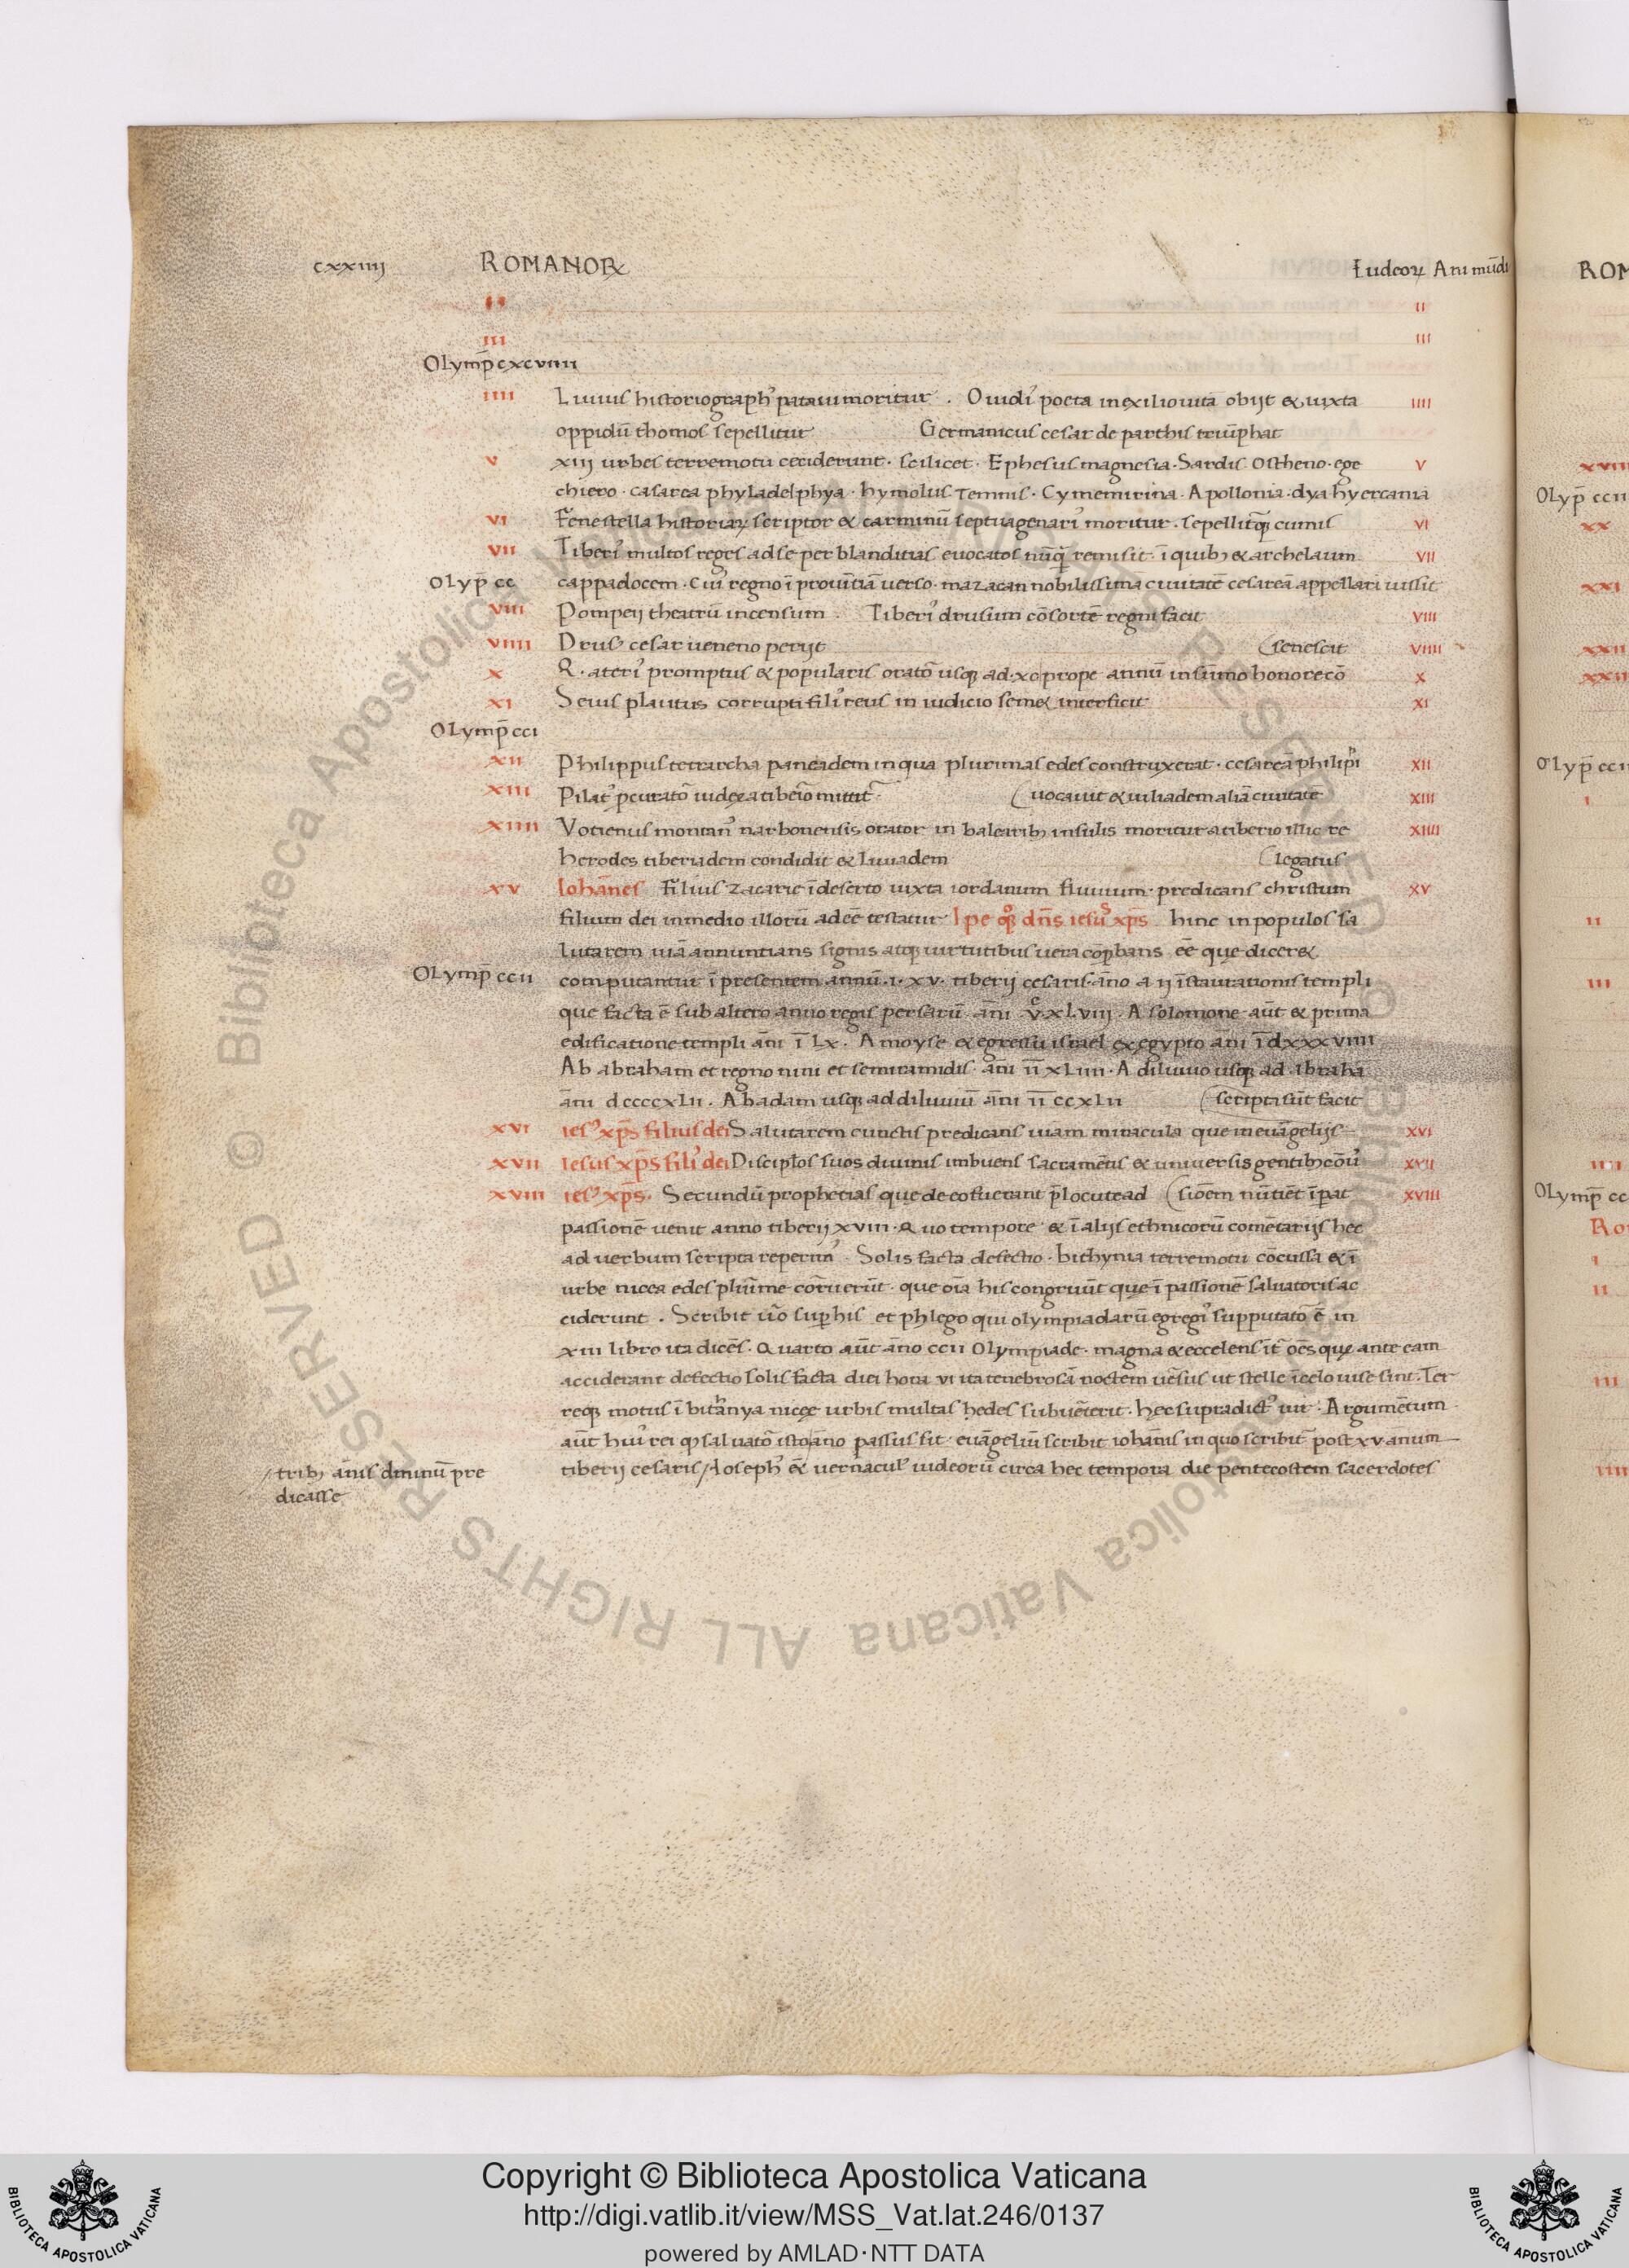 cxxiiij ROMANOR Iudeoꝝ Ani mũdi ROM
II II
III III
Olymp̄ cxcviiii
IIII Liuius historiograph' patauii moritur . Ouidi' poeta in exilio uitā obijt & iuxta IIII
oppidū thomos sepellitur Germanicus cesar de parthis triūphat
V xiij urbes terremotu ceciderunt · scilicet · Ephesus magnesia · Sardis Ostheno · ege V
chiero · casarea phyladelphya · hymolus Temnis · Cyme mirina · Apollonia · dya hyercania
VI Fenestella historiaꝝ scriptor & carminū septuagenari' moritur . sepelliꝉqꝫ cumis VI
VII Tiberi' multos reges ad se per blanditias euocatos nūq̄ remisit · ī quibꝫ & archelaum VII
Olyp̄ cc cappadocem · Cui' regno ī prouītiā uerso · mazacan nobilissima ciuitatē cesareā appellari iussit
VIII Pompeij theatrū incensum . Tiberi' drusum cōsortē regni facit VIII
VIIII Drus' cesar ueneno perijt (senescit VIIII
X R · ateri' promptus & popularis oratō usqꝫ ad · xc prope annū in sūmo honore cō X
XI Seuis plautus corrupti fili' reus in iudicio semet interficit XI
Olymp̄ cci
XII Philippus tetrarcha paneadem in qua plurimas edes construxerat · cesareā philipi XII
XIII Pilat' pcuratō iudeę a tiberio mittit (uocauit & iuliadem aliā ciuitatē XIII
XIIII Votienus montan' narbonensis orator in balearibꝫ insulis moritur a tiberio illic re XIIII
herodes tiberiadem condidit & Liuiadem (legatus
XV Iohānes Filius zacarie ī deserto iuxta iordanum fluuium · predicans christum XV
filium dei in medio illorū adeē testatur Ipe qꝫ dn̄s iesus xp̄s hinc in populos sa
lutarem uiā annuntians signis atqꝫ uirtutibus uera cōprbans eē que diceret
Olymp̄ ccii computantur ī presentem annū · i · xv · tiberij cesaris · āno a ij īstaurationis templi
que facta ē sub altero anno regis persarū āni vxlviij . A solomone aūt & prima
edificatione templi āni ī lx . A moyse & egressu israel ex egypto āni ī dxxxviiii
Ab abraham et regno nini et semiramidis · āni īī xliiii · A diluuio usqꝫ ad Abrahā
āni dccccxlii . Ab adam usqꝫ ad diluuiū āni īī ccxlii (scripti sūt facit
XVI ies' xp̄s filius dei Salutarem cunctis predicans uiam miracula que in euāgelijs XVI
XVII Iesus xp̄s fili' dei Discipłos suos diuinis imbuens sacramētis & uniuersis gentibꝫ cōu' XVII
XVIII ies' xp̄s · Secundū prophetias que de eo fuerant p̄locute ad (sioēm nūtiēt īpat XVIII
passionē uenit anno tiberij xviii · Quo tempore & ī alijs ethnicorū comētarijs hec
ad uerbum scripta reperim' · Solis facta defectio · bithynia terremotu cōcussa & ī
urbe nicea edes plurīme corruerūt · que oīa his congruūt que ī passionē saluatoris ac
ciderunt . Scribit uo sup his et phlego qui olympiadarū egregi' supputatō ē in
xiii libro ita dicēs · Quarto aūt āno ccii Olympiade · magna & eccelens īt oēs que ante eam
acciderant defectio solis facta diei hora vi ita tenebrosā noctem uēsus ut stelle ī celo uise sint . Ter
reqꝫ motus ī bithanya nicęe urbis multas hedes subuēterit · hec supradict' uir · Argumētum
aūt hui' rei qꝫ saluatō isto āno passus sit euāgeliū scribit iohānis in quo scribit post xv anum
tiberij cesaris // Ioseph' & uernacul' iudeorū circa hec tempora die pentecostem sacerdotes
// tribꝫ ānis dmīnū pre
dicasse
Copyright © Biblioteca Apostolica Vaticana
http://digi.vatlib.it/view/MSS_Vat.lat.246/0137
powered by AMLAD·NTT DATA
BIBLIOTECA APOSTOLICA VATICANA
BIBLIOTECA APOSTOLICA VATICANA